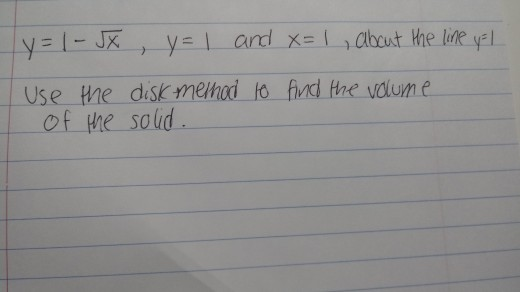 y = 1 - √x , y = 1 and x = 1 , about the line y=1
Use the disk method to find the volume
of the solid.